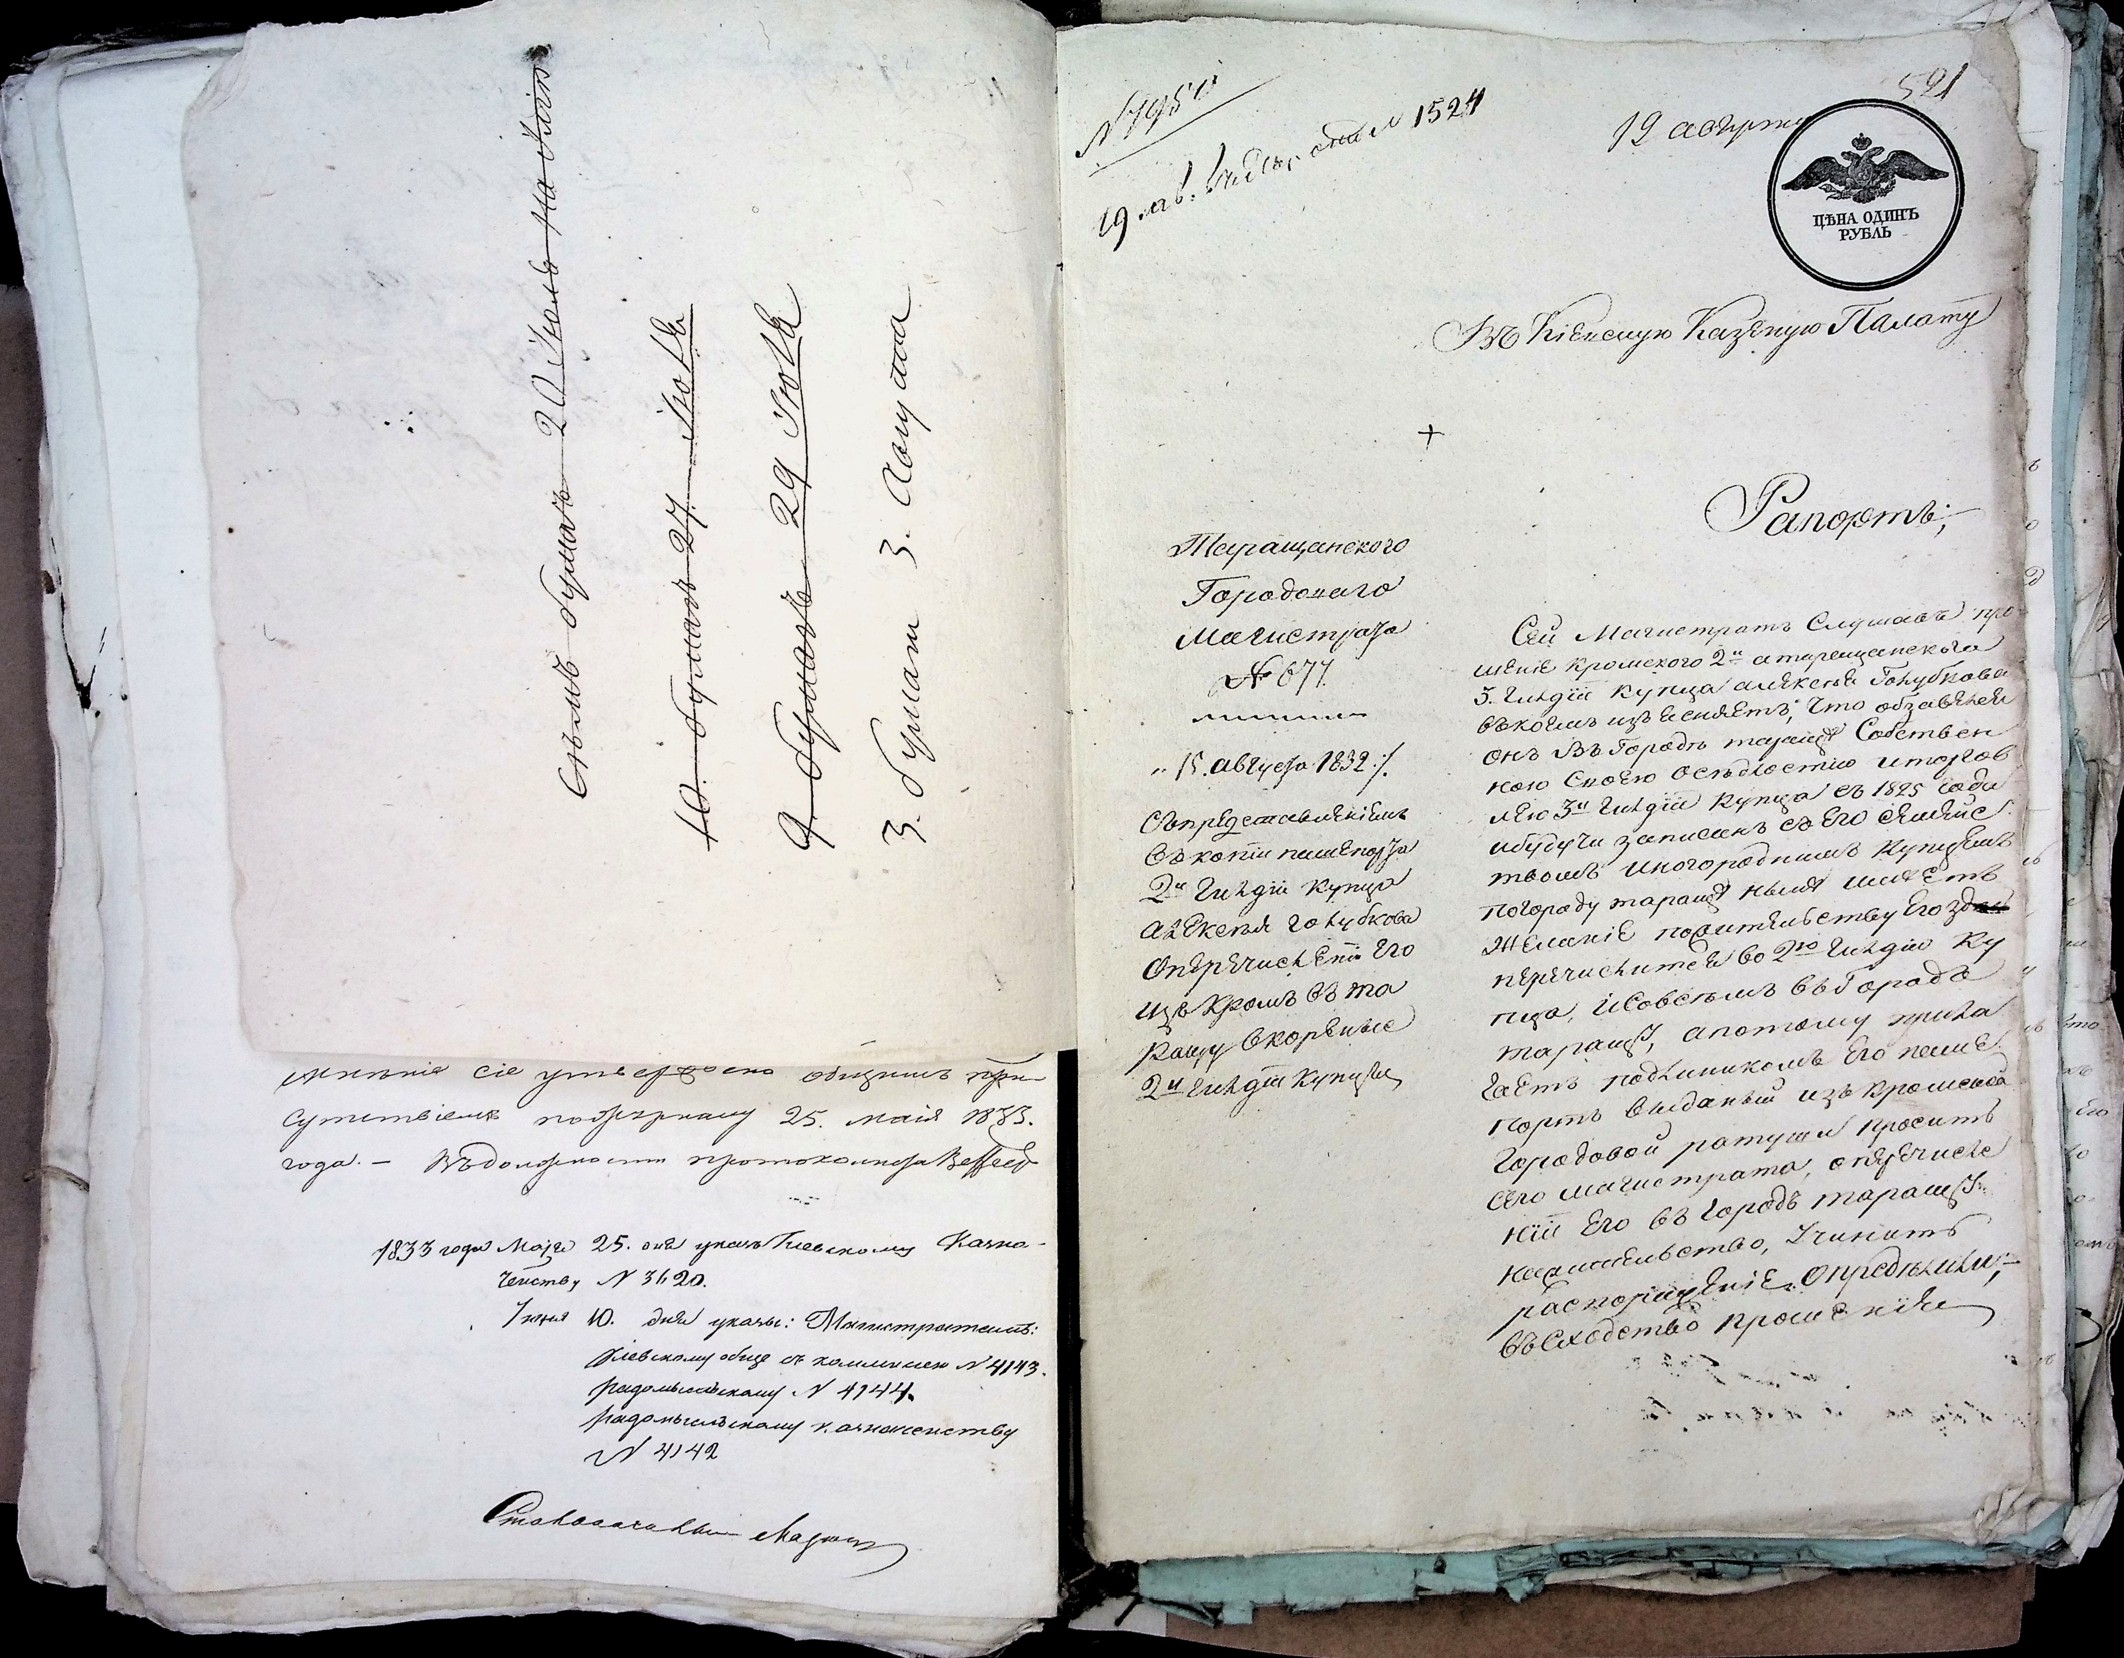 Съмъ бумагъ 20 Іюля на
10. бумагъ 27. Іюля
9 бумагъ 29 Іюля
3. бумаги 3. Августа
мнѣніе сіе утверждено общимъ при
сутствіемъ по журналу 25. маія 1833.
года. — Въ должности протоколиста
1833 года Маія 25. дня указъ Кіевскому Казна-
чейству N 3620.
Іюня 10. дня указы: Магистратамъ:
Кіевскому обще съ коммисіею N 4143.
радомысльскому N 4144.
радомысльскому казначейству
N 4142
Столоначальникъ
N 7950
19 авг. 1524
12 августа
521
ЦѢНА ОДИНЪ
РУБЛЬ
Въ Кіевскую Казеную Палату
Таращанского
Городоваго
Магистрата
№ 677.
„ 15. августа 1832 ./.
Съ представленіемъ
въ копіи пашепорта
2й гилдіи купца
алексѣя голубкова
О перечисленіи его
изъ Кромъ въ та
ращу вкореные
2й гилдіи купцы
Рапортъ;
Сей Магистратъ Слушавъ про
шеніе кромского 2й а таращанскаго
3. гилдіи купца алексея Голубкова
въ коемъ изъясняетъ, что обзавѣлся
онъ въ Городѣ таращѣ Собствен
ною Своею осѣдлостію и торгов
лею 3й гилдіи купца съ 1825 года
и будучи записанъ съ его семейс
твомъ иногороднимъ купцемъ
по городу таращѣ нынѣ имѣетъ
Желаніе по жительству Его
перечислится во 2ю гилдію Ку
пца, и Совсѣмъ въ Городѣ
таращѣ, а потому прила
гаетъ подлиникомъ Его паше
портъ выданый изъ Кромской
Городовой ратуши просить
сего магистрата, о перечисле
ніи Его въ городѣ таращѣ
на жительство, Учинить
распоряженіе, Опредѣлили;
въ Сходство прошенія